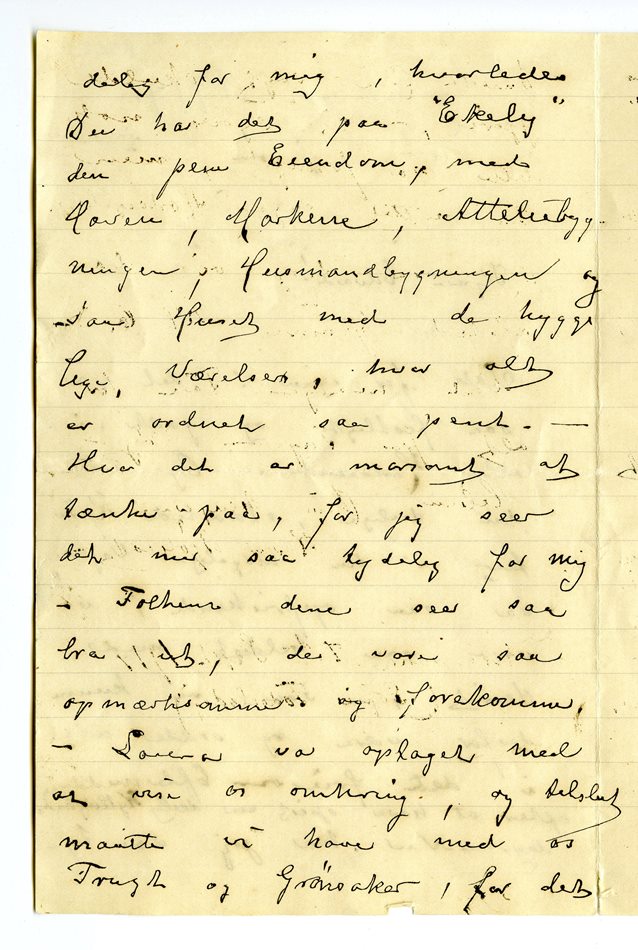 delig for mig, hvorledes
Du har det paa "Ekely"
den pene Eiendom, med
Haven, Markene, Attelierbyg-
ningen, Husmandbygningen og
saa Huset med de hygge
lige, Værelser, hvor alt
er ordnet saa pent. —
Hvor det er morsomt at
tænke paa, for jeg seer
det nu saa tydelig for mig
– Folkene dine seer saa
bra ut, de vare saa
opmærksomme og forekomme.
– Lovera var optaget med
at vise os omkring, og tilslut
maatte vi have med os
Frugt og Grönsaker, for det